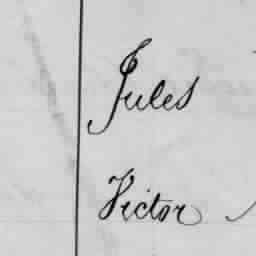 Jules
Victor